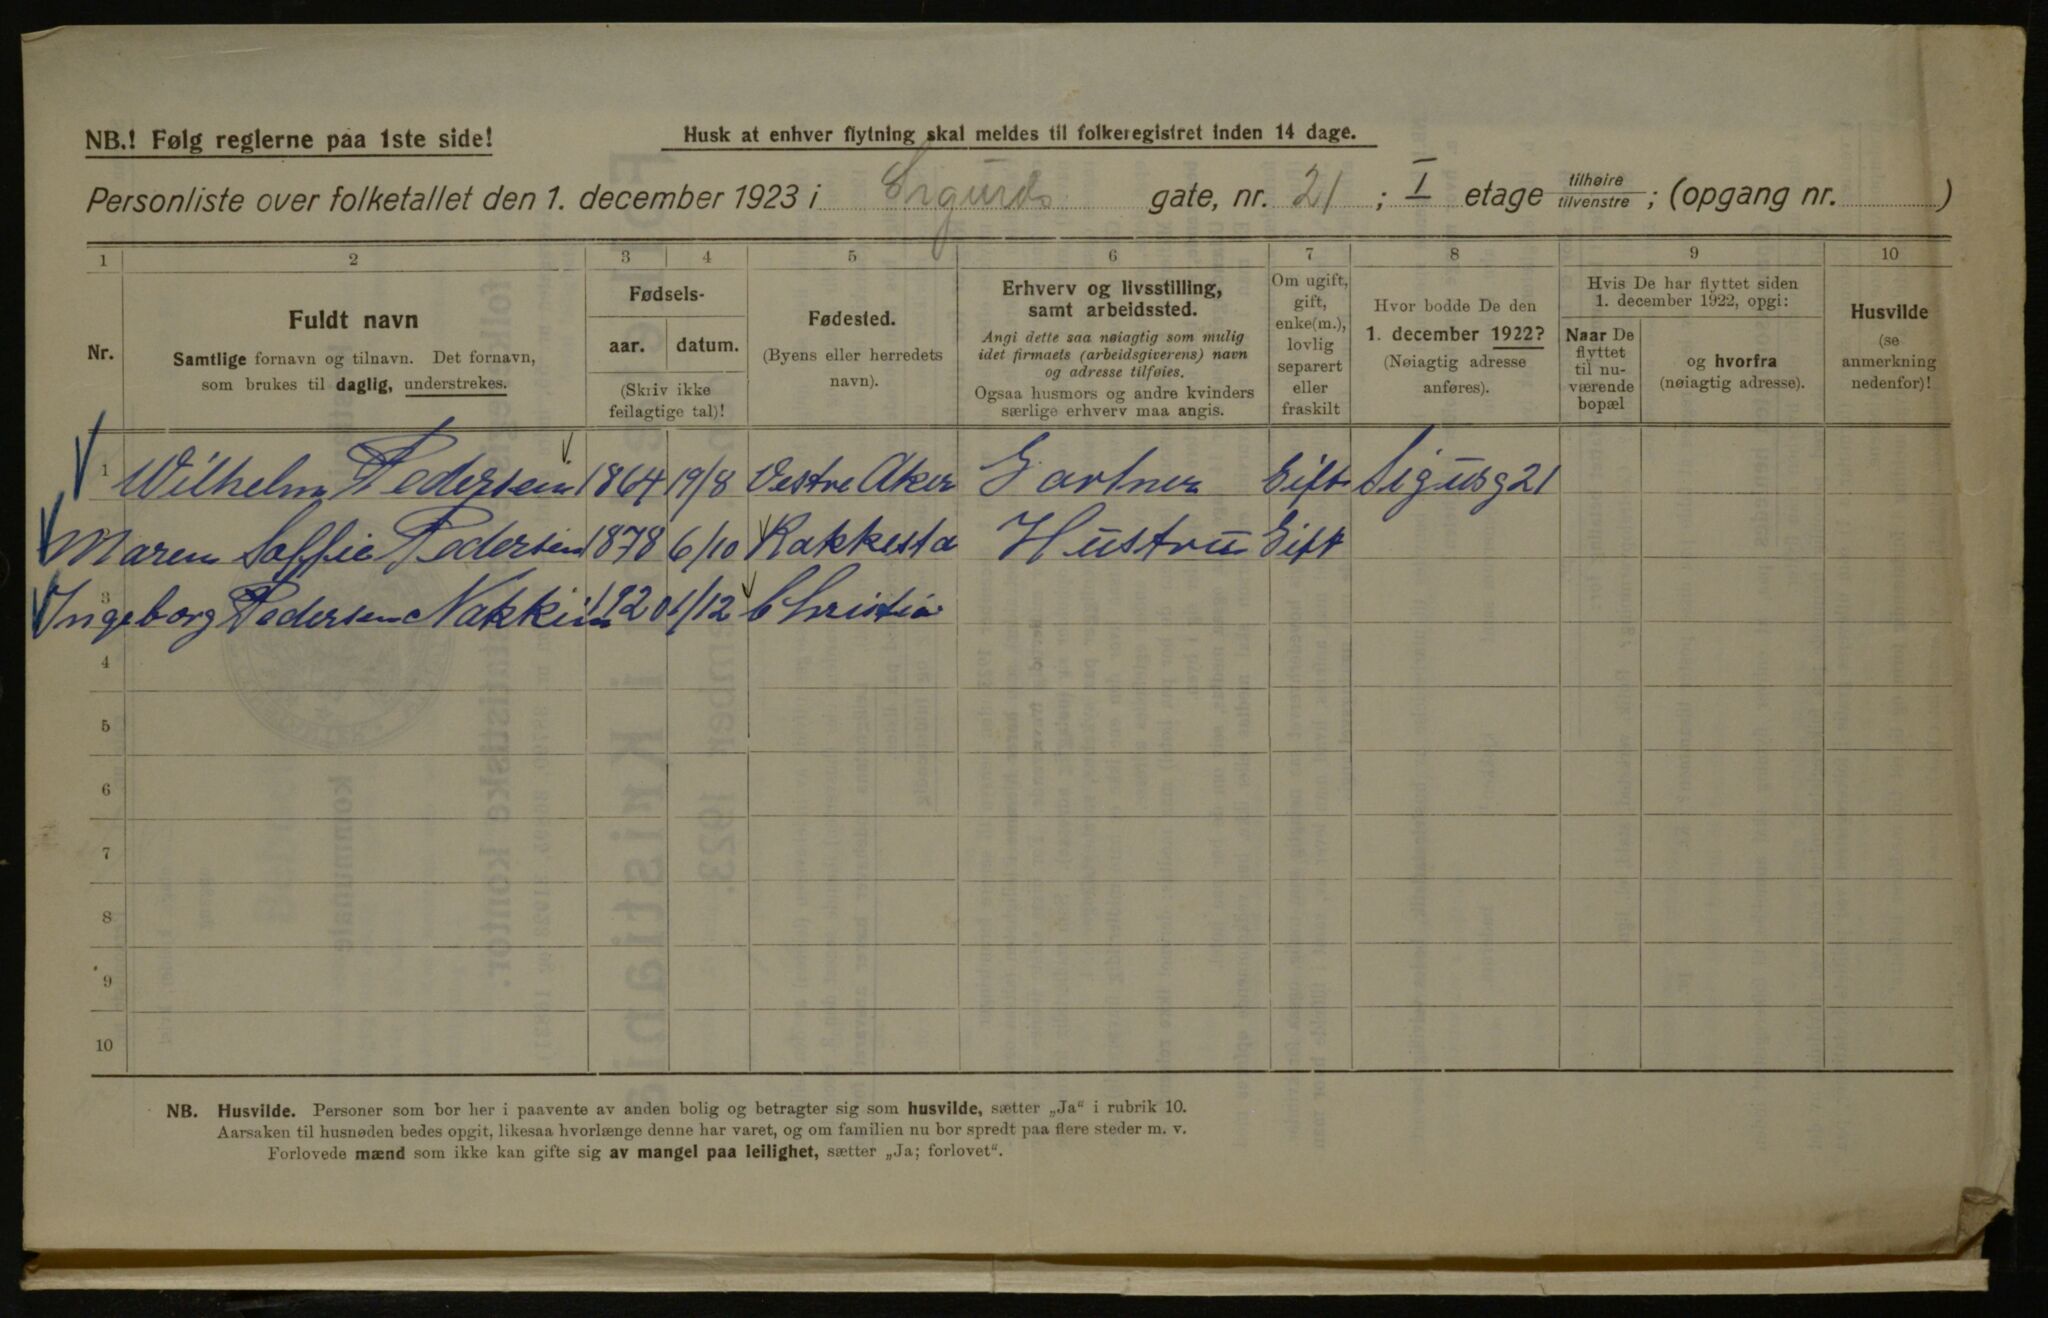 NB.! Følg reglerne paa 1ste side!
Husk at enhver flytning skal meldes til folkeregistret inden 14 dage.
Personliste over folketallet den 1. december 1923 i Sigurds gate, nr. 21 ; I etage tilhøire tilvenstre ; (opgang nr. )
1 2 3 4 5 6 7 8 9 10
Nr.
Fuldt navn
Samtlige fornavn og tilnavn. Det fornavn,
som brukes til daglig, understrekes.
Fødsels-
aar. datum.
(Skriv ikke
feilagtige tal)!
Fødested.
(Byens eller herredets
navn).
Erhverv og livsstilling,
samt arbeidssted.
Angi dette saa nøiagtig som mulig
idet firmaets (arbeidsgiverens) navn
og adresse tilføies.
Ogsaa husmors og andre kvinders
særlige erhverv maa angis.
Om ugift,
gift,
enke(m.),
lovlig
separert
eller
fraskilt
Hvor bodde De den
1. december 1922?
(Nøiagtig adresse
anføres).
Hvis De har flyttet siden
1. december 1922, opgi:
Naar De
flyttet
til nu-
værende
bopæl
og hvorfra
(nøiagtig adresse).
Husvilde
(se
anmerkning
nedenfor)!
1 Wilhelm Pedersen 1864 19/8 Vestre Aker Gartner Gift Sigusg 21
Maren Soffie Pedersen 1878 6/10 Rakkesta Hustru Gift
3 Ingeborg Pedersen Nakkim 1920 1/12 Christia
4
5
6
7
8
9
10
NB. Husvilde. Personer som bor her i paavente av anden bolig og betragter sig som husvilde, sætter „Ja“ i rubrik 10.
Aarsaken til husnøden bedes opgit, likesaa hvorlænge denne har varet, og om familien nu bor spredt paa flere steder m. v.
Forlovede mænd som ikke kan gifte sig av mangel paa leilighet, sætter „Ja; forlovet“.